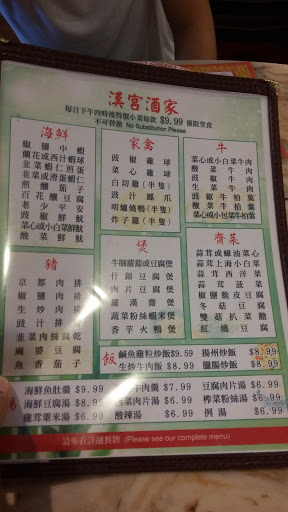 漢宮酒家
每日下午四時後特價小菜每款 $9.99 僅限堂食
不可替換 No Substitution Please
海鮮
椒鹽中蝦
蘭花或西汁蝦球
韭菜或滑蛋蝦仁
煎釀茄子
百花釀豆腐
老少平安
豉椒鮮魷
菜心或小白菜鮮魷
酸菜鮮魷
家禽
豉椒雞球
菜心雞球
白切雞(半隻)
豉汁鳳爪
明爐燒鴨(半隻)
炸子雞(半隻)
牛
菜心或小白菜牛肉
酸菜牛肉
豉椒牛肉
豉椒牛柏葉
酸菜牛柏葉
菜心或小包菜牛柏葉
豬
京都肉排
椒鹽肉排
生炒肉排
豉汁排骨
韭菜肉絲腐乾
麻婆豆腐
魚香茄子
煲
牛腩蘿蔔或豆腐煲
什錦豆腐煲
肉片豆腐煲
羅漢齋煲
蔬菜粉絲蝦米煲
香芋火鴨煲
齋菜
蒜茸或蠔油菜心
蒜茸上海小白菜
蒜茸西洋菜
蒜茸菠菜
椒鹽脆皮豆腐
冬菇豆腐
雙菇扒菜膽
紅燒豆腐
飯
鹹魚雞粒炒飯 $9.59
揚州炒飯 $8.99
生炒牛肉飯 $8.99
臘腸炒飯 $8.99
海鮮魚肚羹 $9.99
牛肉羹 $7.99
豆腐肉片湯 $6.99
海鮮豆腐湯 $8.99
菜肉片湯 $6.99
榨菜粉絲湯 $6.99
雞茸粟米湯 $6.99
酸辣湯 $6.99
例湯 $6.99
請參看詳細餐牌 (Please see our complete menu)